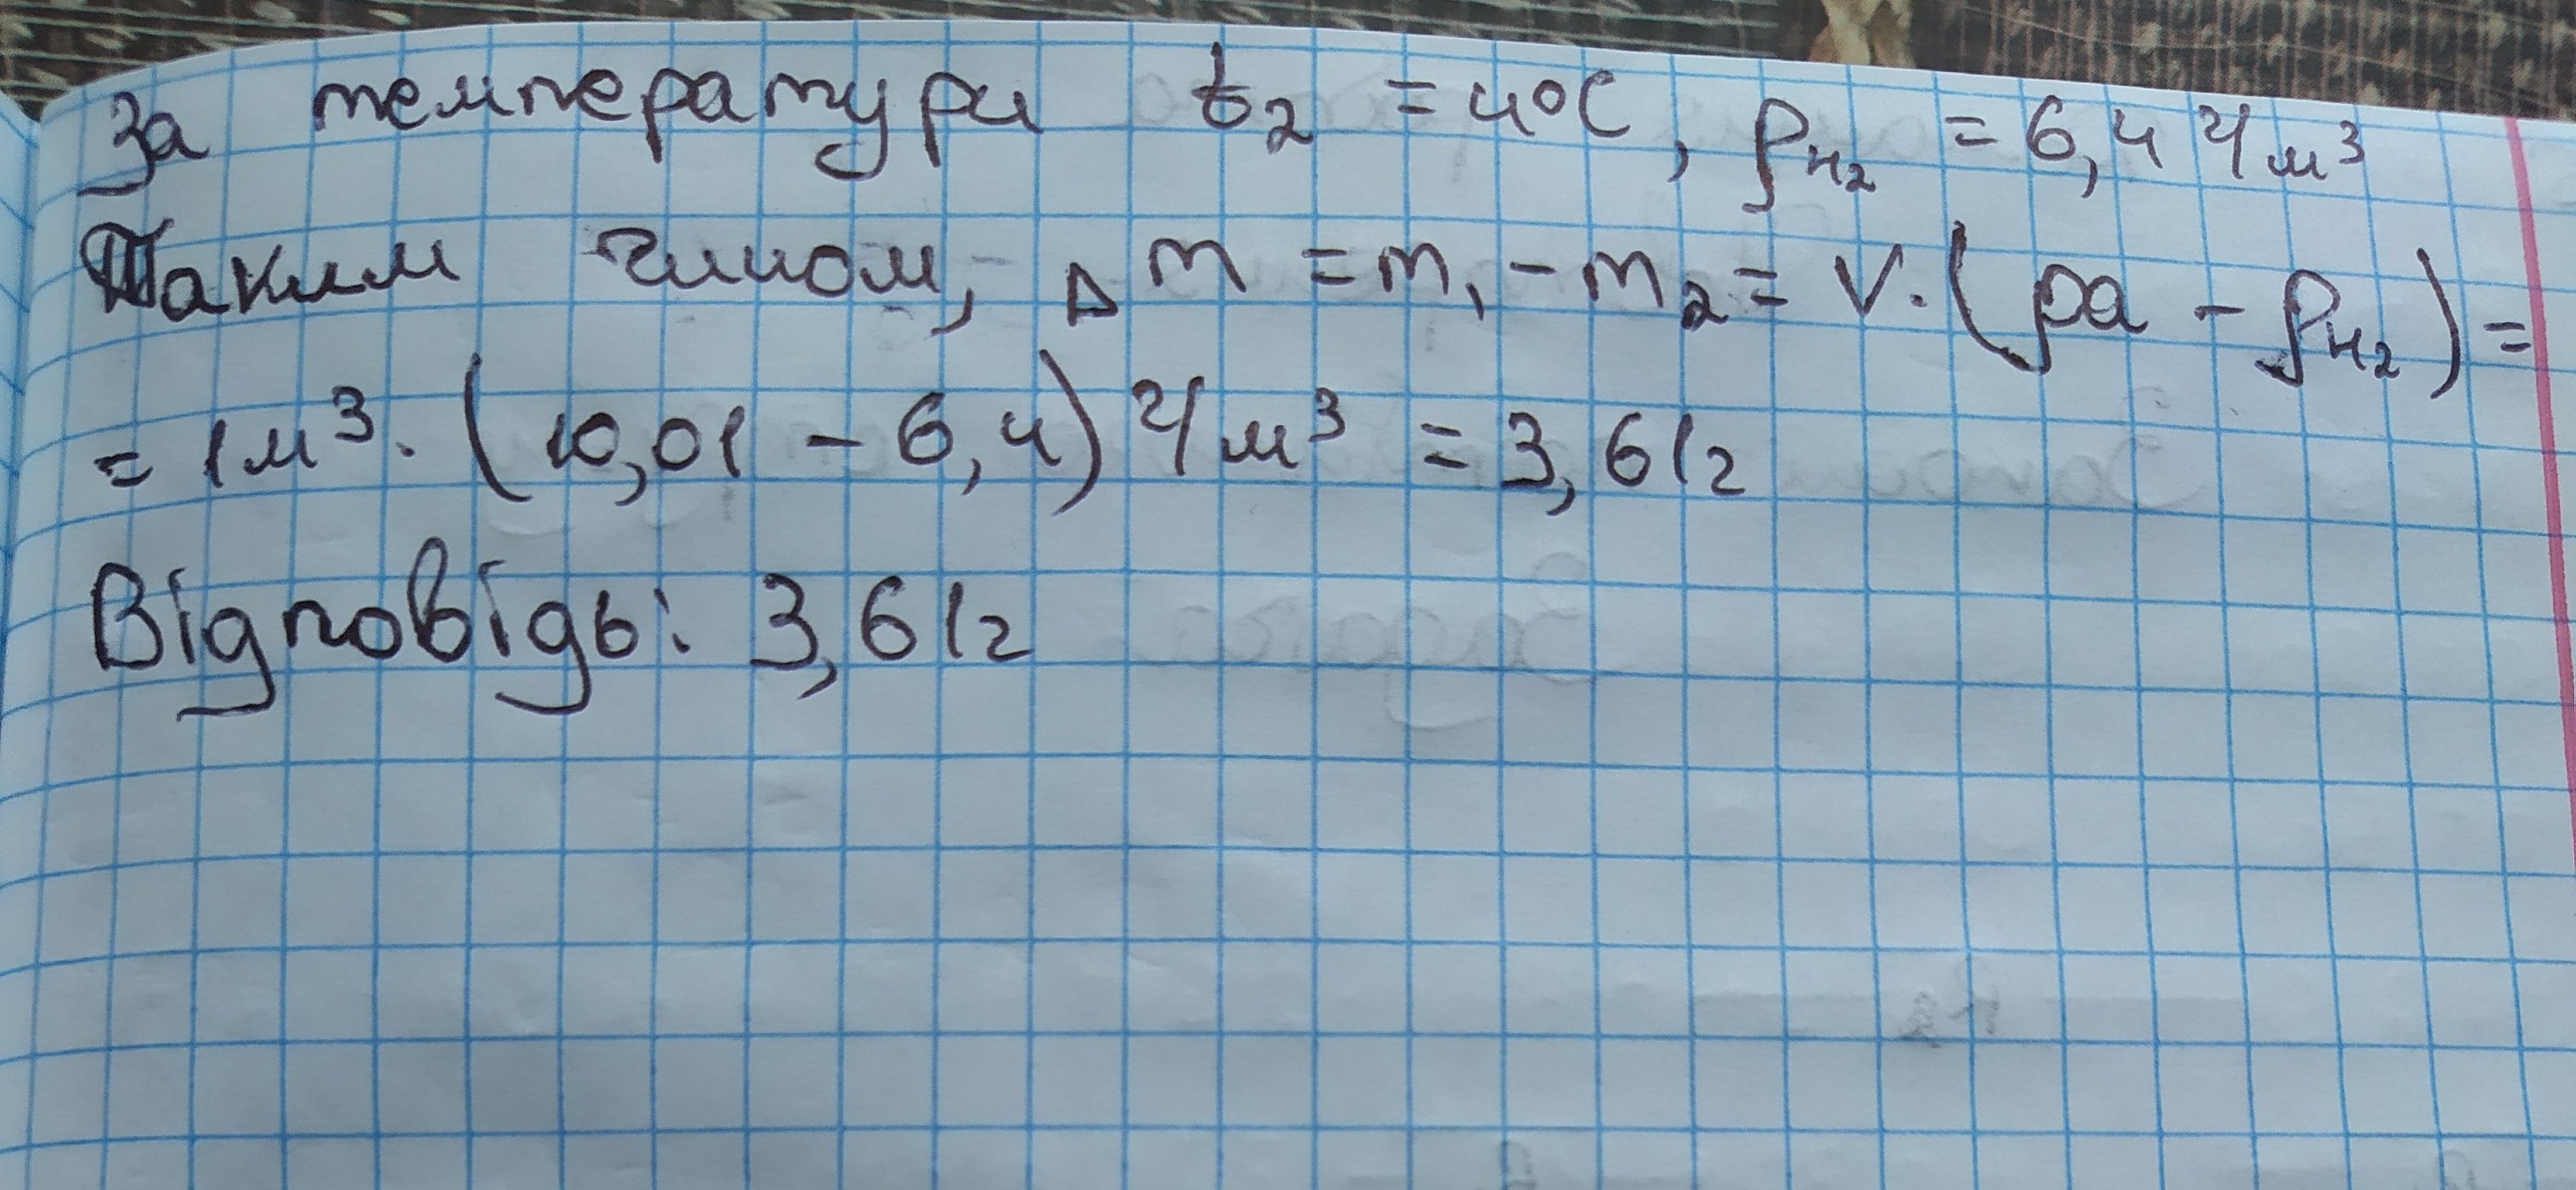 За температури t₂ = 4°C, ρн₂ = 6,4 г/м³
Таким чином, Δm = m₁ - m₂ = V·(ρа - ρн₂) =
= 1м³·(10,01 - 6,4) г/м³ = 3,61г
Відповідь: 3,61г